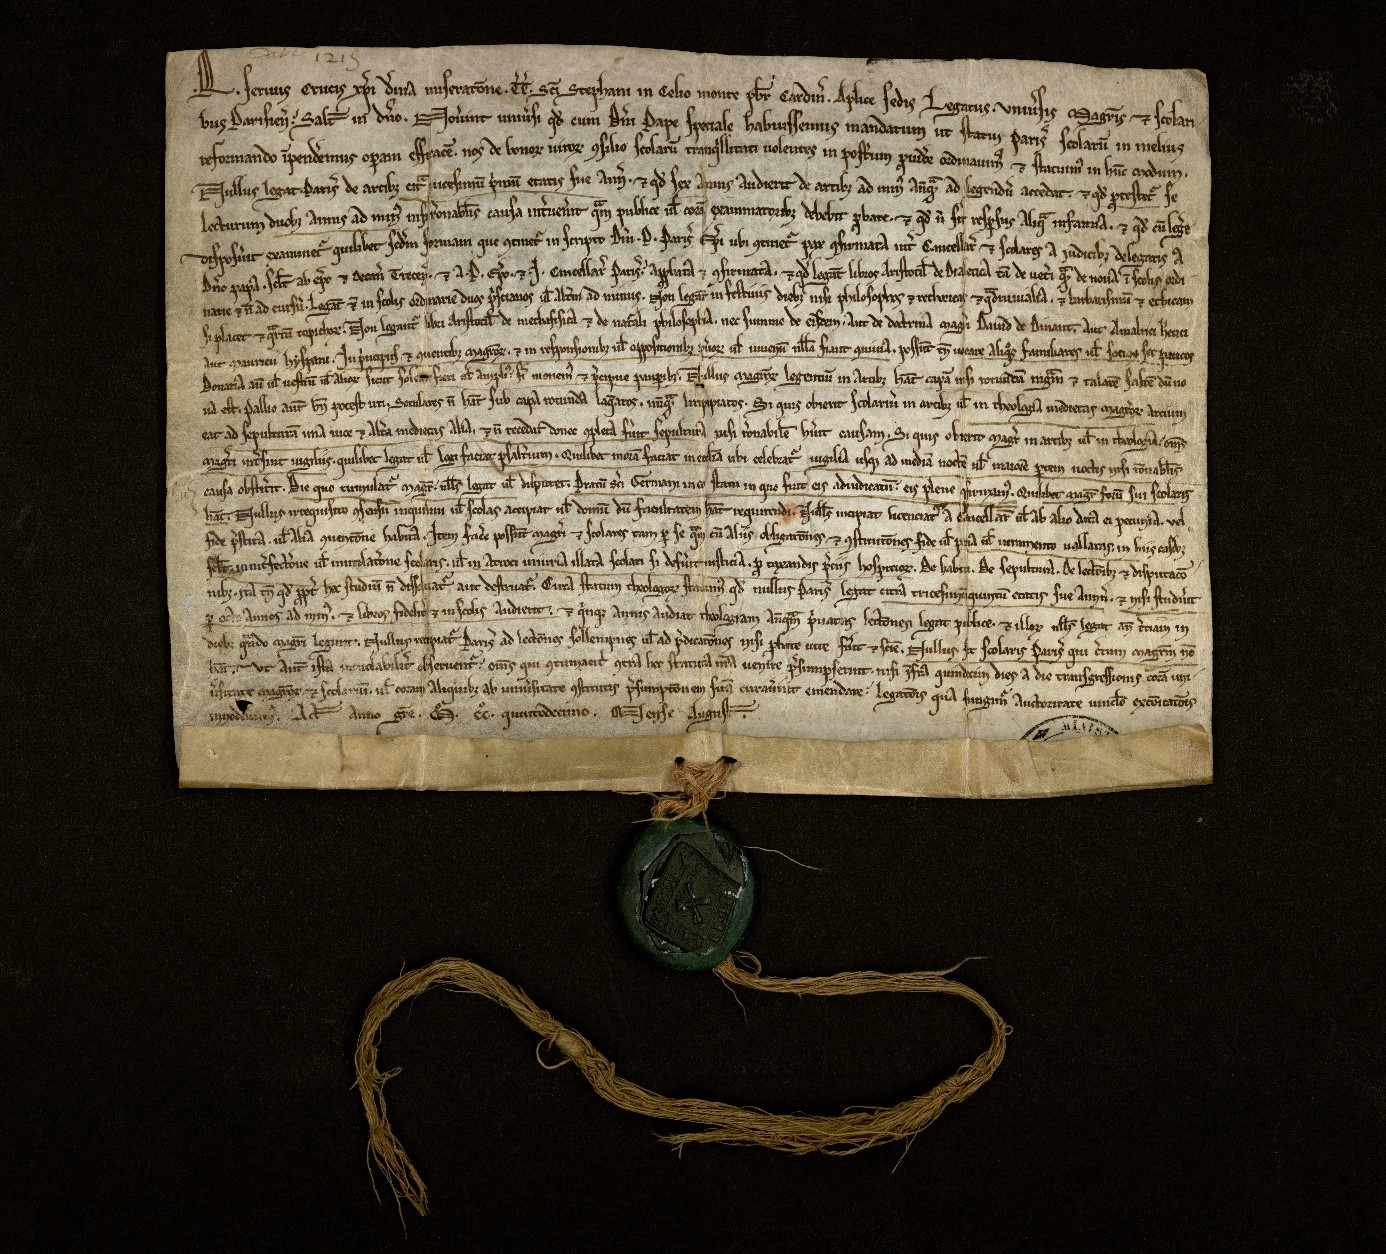 Dabes 1215
R. seruus Crucis xp̄i diuīa miseratōne. Tt̄. Sc̄i Stephani in Celio monte pbr̄ Cardin̄. Aplice sedis Legatus. Vniu̾sis Magr̄is ⁊ scolari
bus Parisien̄. Salt̄ in dn̄o. Nou̾int uniu̾si qd̾ cum Dn̄i Pape speciale habuissemus mandatum ut statui Paris̾ scolariū in melius
reformando īpend̾emus opam efficacē. nos de bonor̄ uiror̄ ɔsilio scolariū tranq̾llitati uolentes in post̾um prouid̾e ordinauim̾ ⁊ statuim̾ in hūc modum.
Nullus legat Paris̾ de artibꝫ cit̾ uicesimū primū etatis sue Ann̾. ⁊ qd̾ sex Annis audierit de artibꝫ ad min̾ anq̾ꝫ ad legendū accedat. ⁊ qd̾ protestet̾ se
lecturum duobꝫ Annis ad min̾ nisi rōnabil̾ causa int̾uen̾it q̾m publice ul̾ corā examinatoribꝫ debebit p̾bare. ⁊ qd̾ n̄ sit resp̾sus aliq̾ infamia. ⁊ qd̾ cū leg̾e
disposu̾it examinet̾ quilibet scd̾m formam que ɔtinet̾ in scripto Dn̄i .P. Paris̾ Ep̄i ubi ɔtinet̾ pax ɔfirmata int̾ Cancellar̾ ⁊ scolares a judicibꝫ delegatis a
Dn̄o papa. scil̾ ab ep̄o ⁊ decan̾ Trecen̾. ⁊ a .P. Ep̄o. ⁊ .J. Cancellar̾ Paris̾. app̾bata ⁊ ɔfirmata. ⁊ qd̾ legāt libros Aristotil̾ de Dialetica tā de uet̾i q̾m de noua ī scolis ordi
narie ⁊ n̄ ad cursū. Legāt ⁊ in scolis ordinarie duos p̾scianos ul̾ alt̾m ad minus. Non legāt in festiuis diebꝫ nisi philosophos ⁊ rethoricas ⁊ q̾druuialia. ⁊ barbarismū ⁊ ethicam
si placet ⁊ q̾rtū topichor̄. Non legant̾ libri Aristotil̾ de methafisica ⁊ de nat̾ali philosophia. nec summe de eisdem. Aut de doctrina mag̾ri Dauid de Dinant. Aut Amalrici heretici
aut Mauricii hyspani. In principiis ⁊ ɔuentibꝫ magr̄or̄. ⁊ in responsionibꝫ ul̾ oppositionibꝫ pueror̄ ul̾ iuuenū nl̾la fiant ɔuiuia. possūt tn̄ uocare aliq̾s familiares ul̾ socios sꝫ paucos
Donaria aūt ul̾ uestiū ul̾ alior̄ sicut solent fieri ul̾ amplius fi̾ monem̾ ⁊ p̾cipue paup̾ibꝫ. Nullus magr̄or̄ legentiū in artibꝫ hat̾ capā nisi rotundā nigrā ⁊ talarē saltē dū no
ua est. Pallio aūt bn̄ potest uti. Sotulares n̄ hat̾ sub capa rotunda laq̾atos. nūq̾ liripipiatos. Si quis obierit scolariū in artibꝫ ul̾ in theologia medietas magr̄or̄ artium
eat ad sepulturā una uice ⁊ alt̾a medietas alia. ⁊ n̄ recedat donec ɔpleta fu̾it sepultura nisi rōnabilē hu̾it causam. Si quis obierit magr̄ in artibꝫ ul̾ in theologia. om̄s
mag̾ri int̾sint uigiliis. quilibet legat ul̾ legi faciat psalt̾ium. Quilibet morā faciat in eccl̾ia ubi celebrat̾ uigilia usq̾ ad mediā noctē ul̾ maiorē p̾tem noctis nisi rōnabil̾
causa obstit̾it. Die quo tumulat̾ magr̄. null̾s legat ul̾ disputet. Pratū sc̄i Germani in eo statu in quo fuit eis adiudicatū. eis plene ɔfirmam̾. Quilibet magr̄ foꝝ sui scolaris
hat̾. Nullus irrequisito ɔsensu inquilini ul̾ scolas accipiat ul̾ domū dū facultatem hat̾ requirendi. Null̾s incipiat licenciat̾ a Cancellar̾ ul̾ ab alio data ei pecunia. uel
fide p̾stita. ul̾ alia ɔuentōne habita. Item fac̾e possūt mag̾ri ⁊ scolares tam p̾ se q̾m cū aliis obligatōnes ⁊ ɔstitutōnes fide ul̾ pena ul̾ iuramento uallatas. in hiis casibꝫ
scil̾ in int̾fectōne ul̾ mutilatōne scolaris. ul̾ in atroci iniuria illata scolari si defu̾it iusticia. p̾ taxandis p̾ciis hospicior̄. De habitu. De sepultura. De lectōibꝫ ⁊ disputacō
nibꝫ. ita tn̄ qd̾ propt̾ hec studiū n̄ dissoluat̾ aut destruat̾. Circa statum theologor̄ statuim̾ qd̾ nullus Paris̾ legat cit̾a tricesimūquintū etatis sue Annū. ⁊ nisi studu̾it
p̾ octo Annos ad min̾. ⁊ libros fidelit̾ ⁊ in scolis Audierit. ⁊ q̾nq̾ Annis audiat theologiam anq̾m p̾uatas lectōnes legat publice. ⁊ illor̄ null̾s legat an̄ t̾ciam in
diebꝫ q̾ndo mag̾ri legunt. Nullus recipiat̾ Paris̾ ad lectōnes sollempnes ul̾ ad p̾dicatōnes nisi p̾bate uite fu̾it ⁊ scīe. Nullus sit scolaris Paris̾ qui c̾tum magr̄m no
hat̾. Vt aūt ista inuiolabilit̾ obseruent̾. om̄s qui ɔtumacit̾ ɔtra hec statuta nr̄a uenire p̾sumpserint. nisi infra quindecim dies a die transgressionis corā uni
u̾sitate magr̄or̄ ⁊ scolariū. ul̾ coram aliquibꝫ ab uniu̾sitate ɔstitutis p̾sumptionem suā curau̾int emendare. legatōis qua fungim̾ auctoritate uinc̾lo excōicatōis
innodam̾. Act̾ Anno gr̄e .M̊. C̊C̊. quintodecimo. Mense August̾.